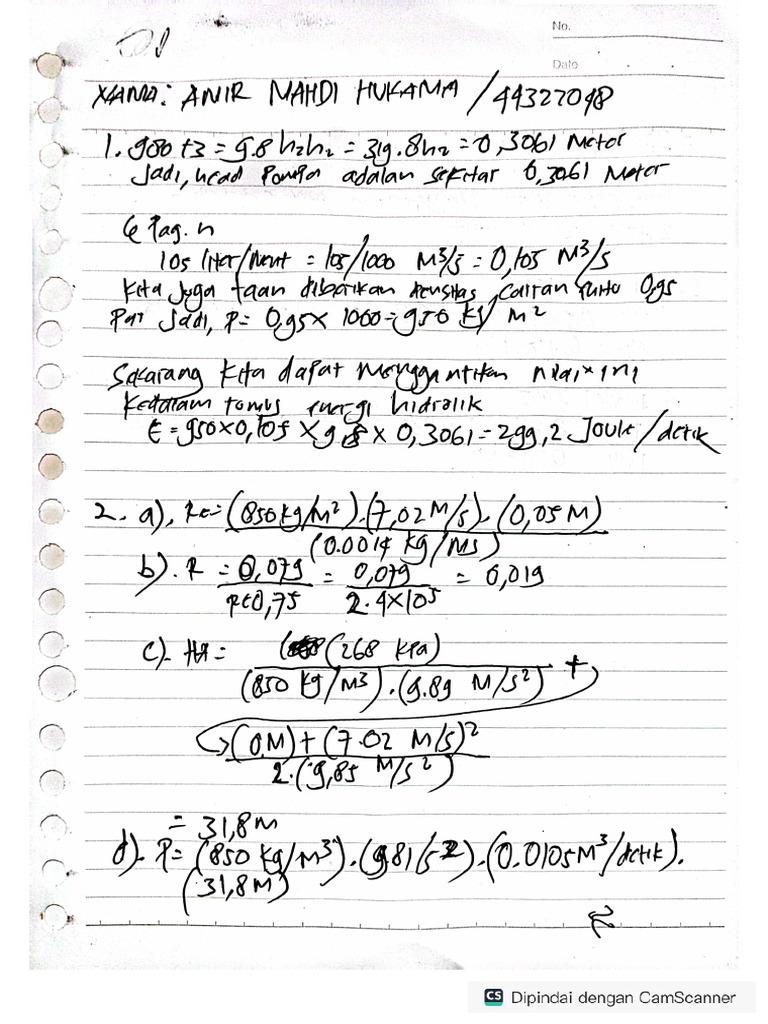 No.
Date
NAMA: ANIR MAHDI HUKAMA / 44327048
1. 980 + 3 = 9.8 h2h2 = 319.8h2 = 0,3061 Meter
Jadi, head Pompa adalah sekitar 0,3061 Meter
105 liter/Menit = 105/1000 M³/s = 0,105 M³/s
Kita Juga taan diberikan densitas, Cairan yaitu 0,95
Par Jadi, P = 0,95 x 1000 = 950 kg/ M²
Sekarang Kita dapat Menggantikan nilai x ini
Kedalam rumus energi hidrolik
E = 950 x 0,105 x 9,8 x 0,3061 = 299,2 Joule/detik
2. a). Re = (850 kg/M²).(7,02 M/s).(0,05 M)
(0.0014 kg/Ms)
b). R = 0,079 = 0,079 = 0,019
Re0,75 2.4x105
c). H = (268 kPa) +
(850 kg/M³).(9.89 M/s²)
(0.M) + (7.02 M/s)²
2.(9,85 M/s²)
= 31,8 M
d). P = (850 kg/m³).(981/s2).(0.0105 M³/detik).
(31,8 M)
CS Dipindai dengan CamScanner